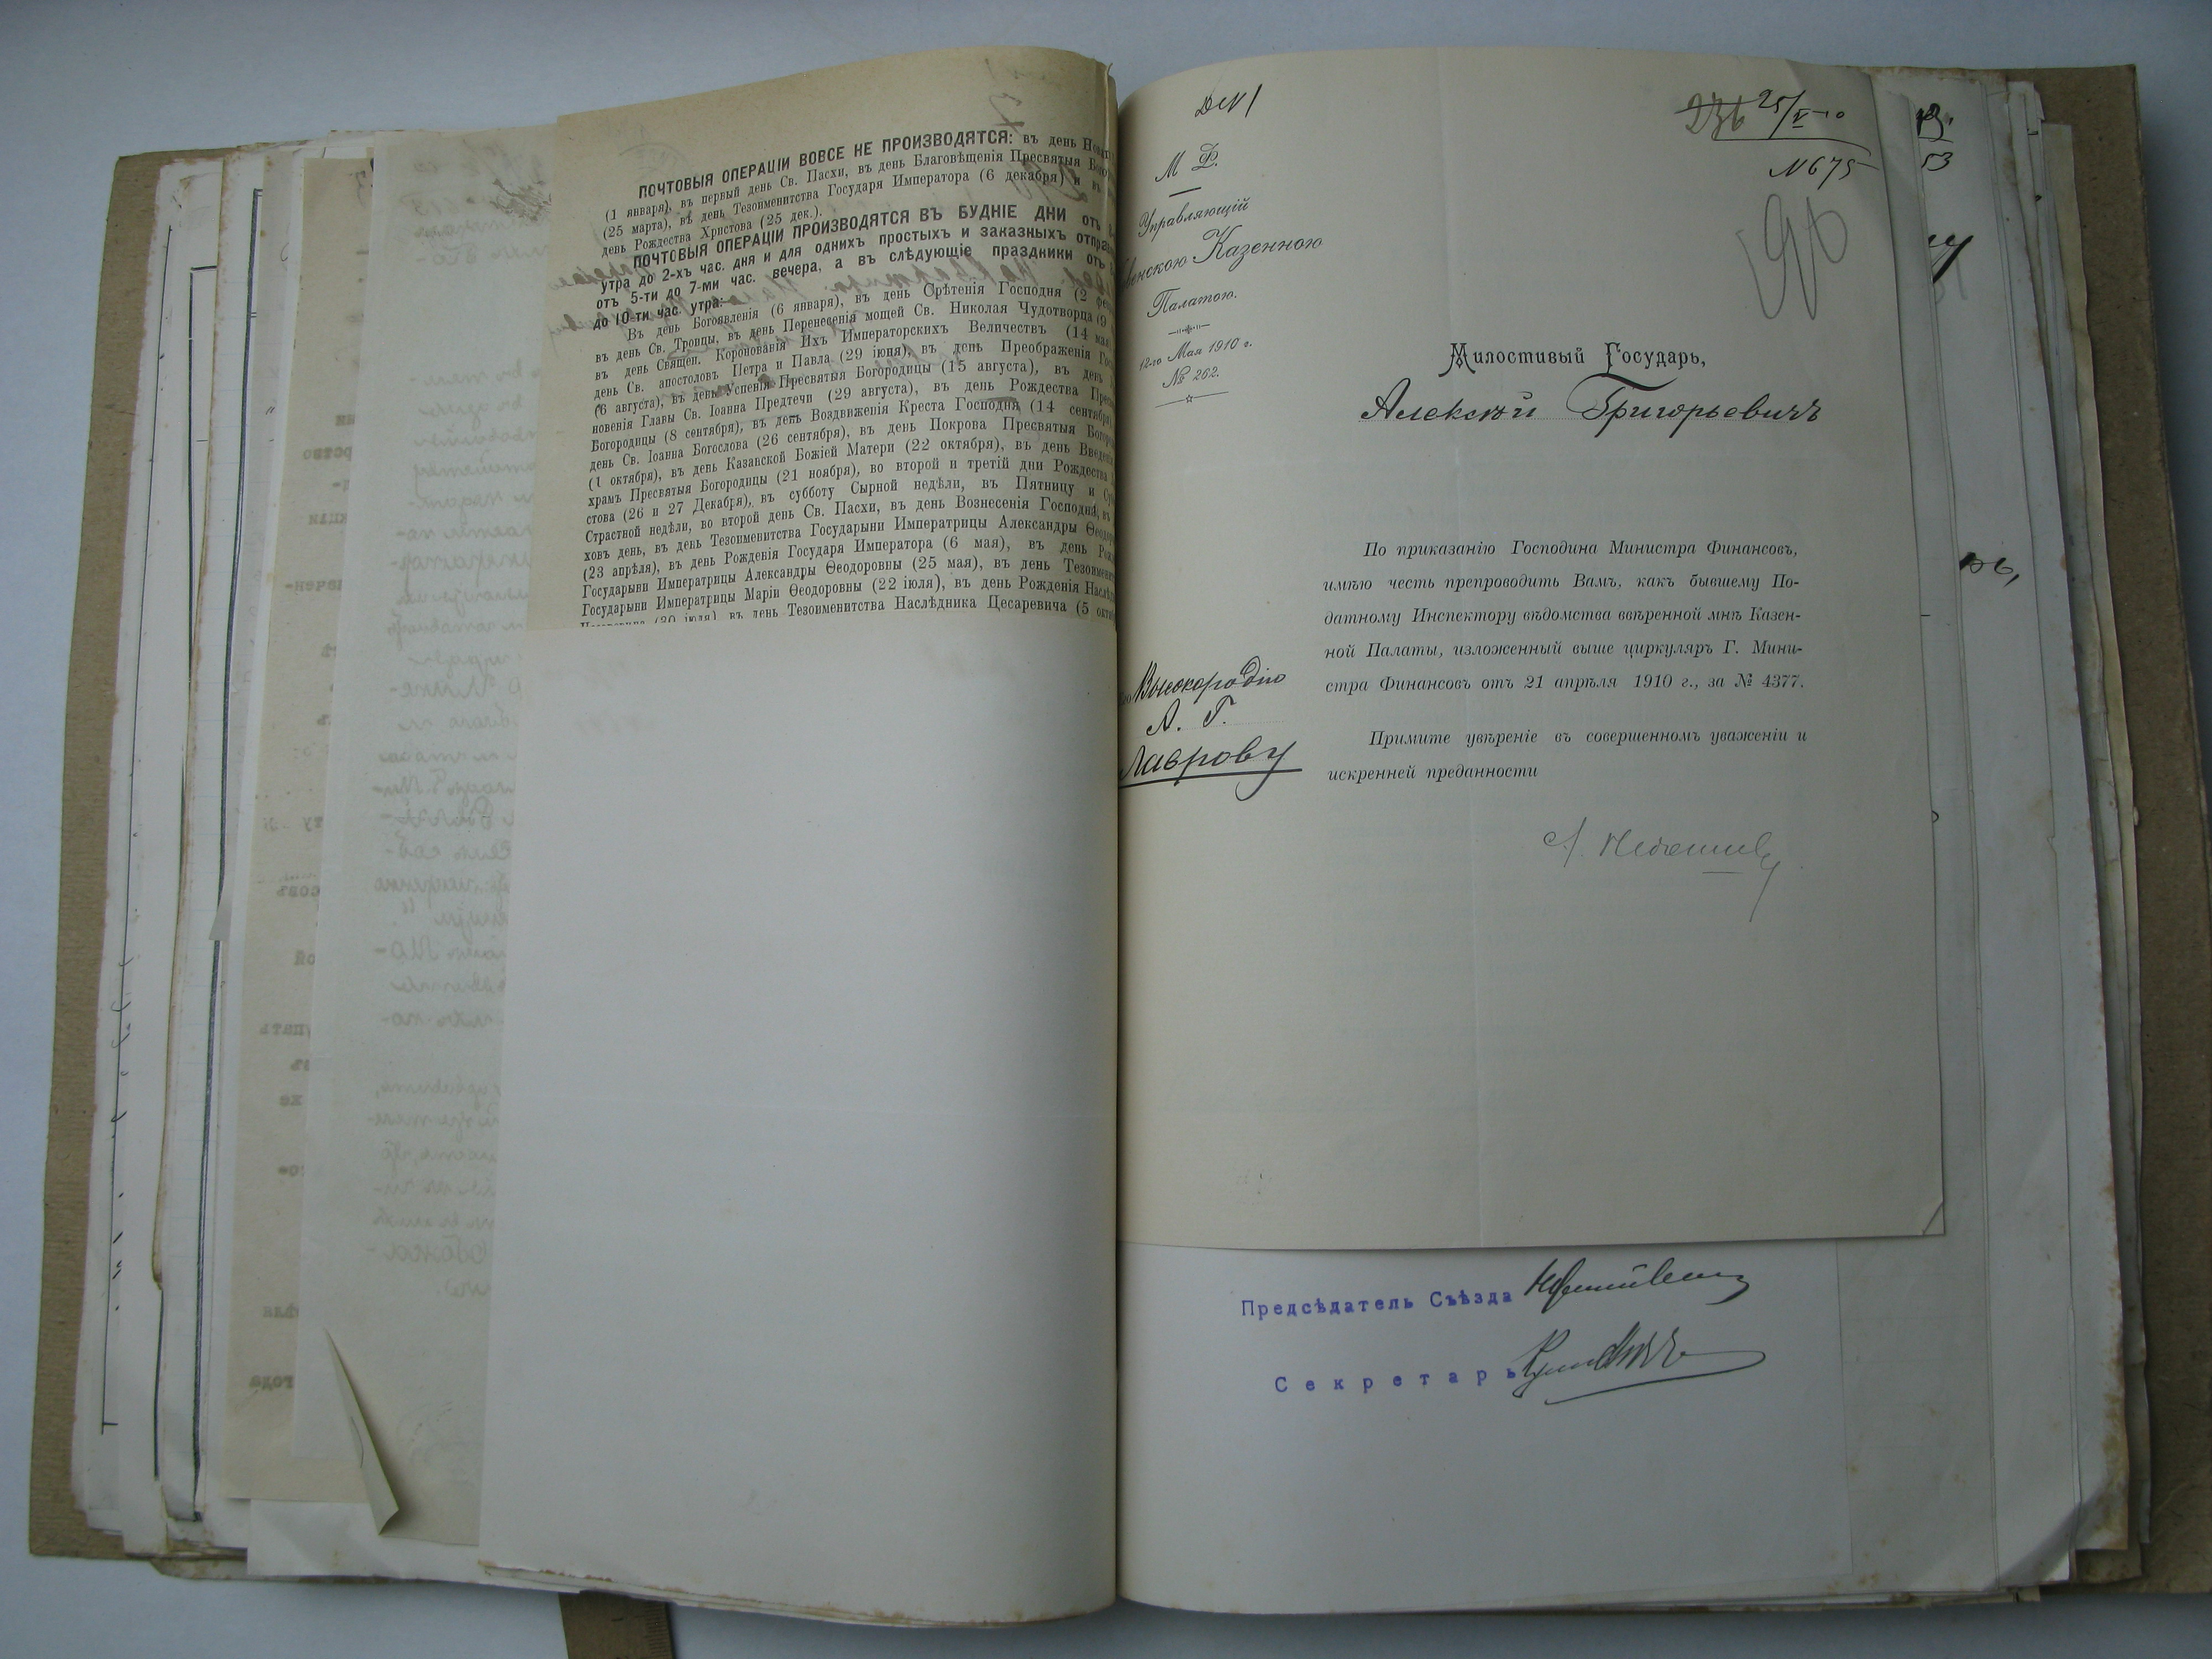 ПОЧТОВЫЯ ОПЕРАЦІИ ВОВСЕ НЕ ПРОИЗВОДЯТСЯ: въ день
(1 января), въ первый день Св. Пасхи, въ день Благовѣщенія Пресвятыя
(25 марта), въ день Тезоименитства Государя Императора (6 декабря) и въ
день Рождества Христова (25 дек.).
ПОЧТОВЫЯ ОПЕРАЦІИ ПРОИЗВОДЯТСЯ ВЪ БУДНІЕ ДНИ отъ
утра до 2-хъ час. дня и для однихъ простыхъ и заказныхъ
отъ 5-ти до 7-ми час. вечера, а въ слѣдующіе праздники отъ
до 10-ти час. утра:
Въ день Богоявленія (6 января), въ день Срѣтенія Господня (2
въ день Св. Троицы, въ день Перенесенія мощей Св. Николая Чудотворца (9
въ день Священ. Коронованія Ихъ Императорскихъ Величествъ (14
день Св. апостоловъ Петра и Павла (29 іюня), въ день Преображенія
(6 августа), въ день Успенія Пресвятыя Богородицы (15 августа), въ день
новенія Главы Св. Іоанна Предтечи (29 августа), въ день Рождества
Богородицы (8 сентября), въ день Воздвиженія Креста Господня (14
день Св. Іоанна Богослова (26 сентября), въ день Покрова Пресвятыя
(1 октября), въ день Казанской Божіей Матери (22 октября), въ день
храмъ Пресвятыя Богородицы (21 ноября), во второй и третій дни Рождества
стова (26 и 27 Декабря), въ субботу Сырной недѣли, въ Пятницу и
Страстной недѣли, во второй день Св. Пасхи, въ день Вознесенія Господня, въ
ховъ день, въ день Тезоименитства Государыни Императрицы Александры
(23 апрѣля), въ день Рожденія Государя Императора (6 мая), въ день
Государыни Императрицы Александры Ѳеодоровны (25 мая), въ день
Государыни Императрицы Маріи Ѳеодоровны (22 іюля), въ день Рожденія
(30 іюля), въ день Тезоименитства Наслѣдника Цесаревича (5
236 25/V
№ 675
96
М. Ф.
Управляющій
Казенною
Палатою.
12-го Мая 1910 г.
№ 262.
Милостивый Государь,
Алексѣй Григорьевичъ
По приказанію Господина Министра Финансовъ,
имѣю честь препроводить Вамъ, какъ бывшему По-
датному Инспектору вѣдомства ввѣренной мнѣ Казен-
ной Палаты, изложенный выше циркуляръ Г. Мини-
стра Финансовъ отъ 21 апрѣля 1910 г., за № 4377.
Примите увѣреніе въ совершенномъ уваженіи и
искренней преданности
Высокородію
А. Г.
Лаврову
Предсѣдатель Съѣзда
Секретарь
53